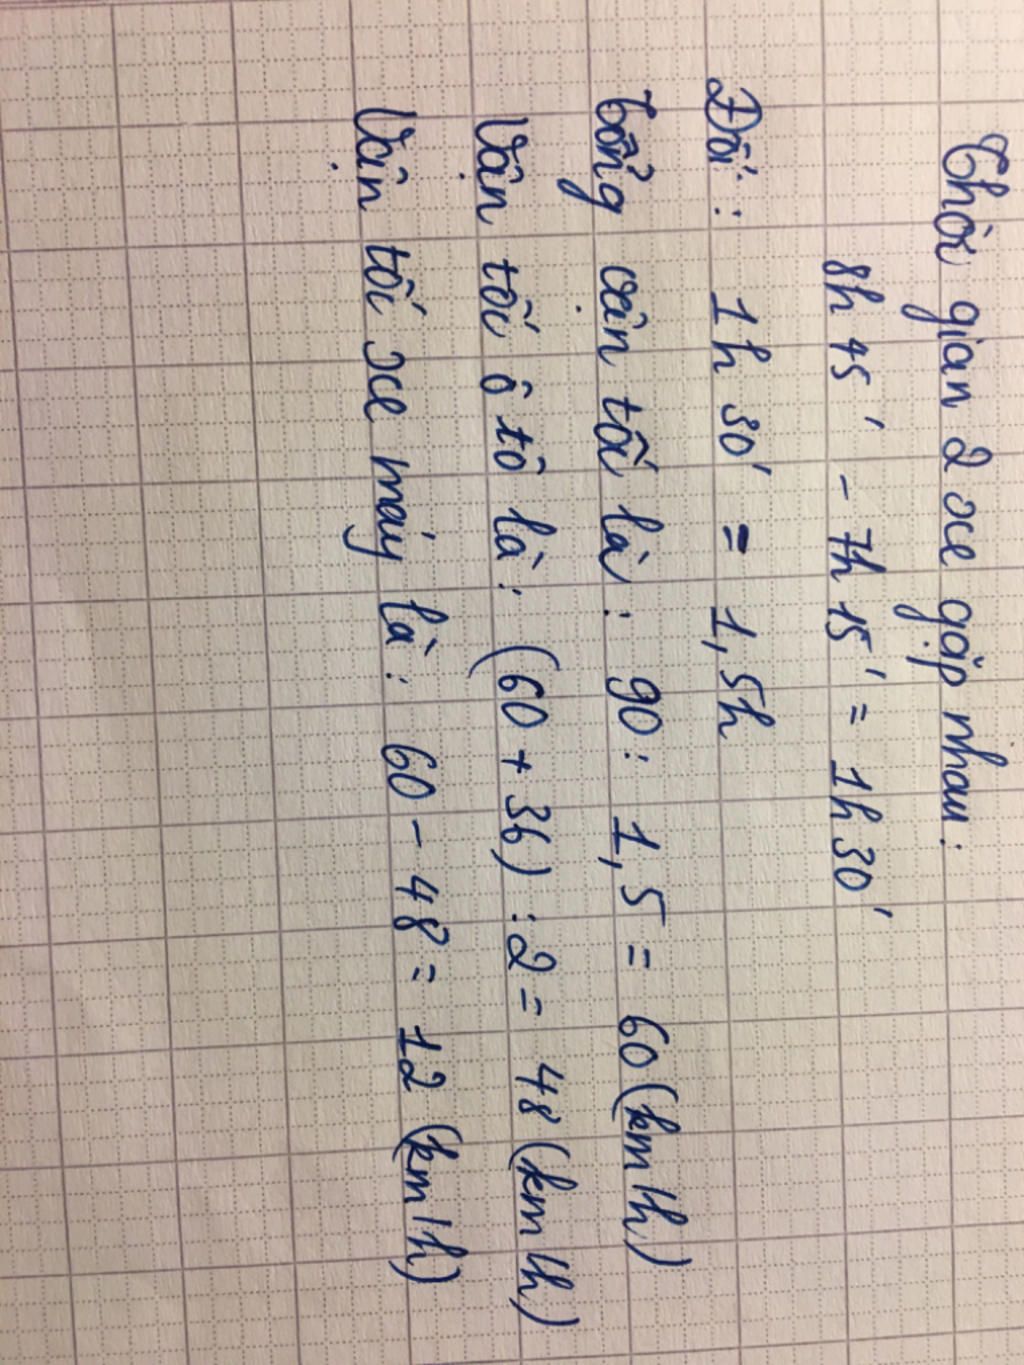 Thời gian 2 xe gặp nhau:
8h 45' - 7h 15' = 1h 30'
Đổi: 1h 30' = 1,5h
Tổng vận tốc là: 90: 1,5 = 60 (km/h)
Vận tốc ô tô là: (60 + 36) : 2 = 48 (km/h)
Vận tốc xe máy là: 60 - 48 = 12 (km/h)